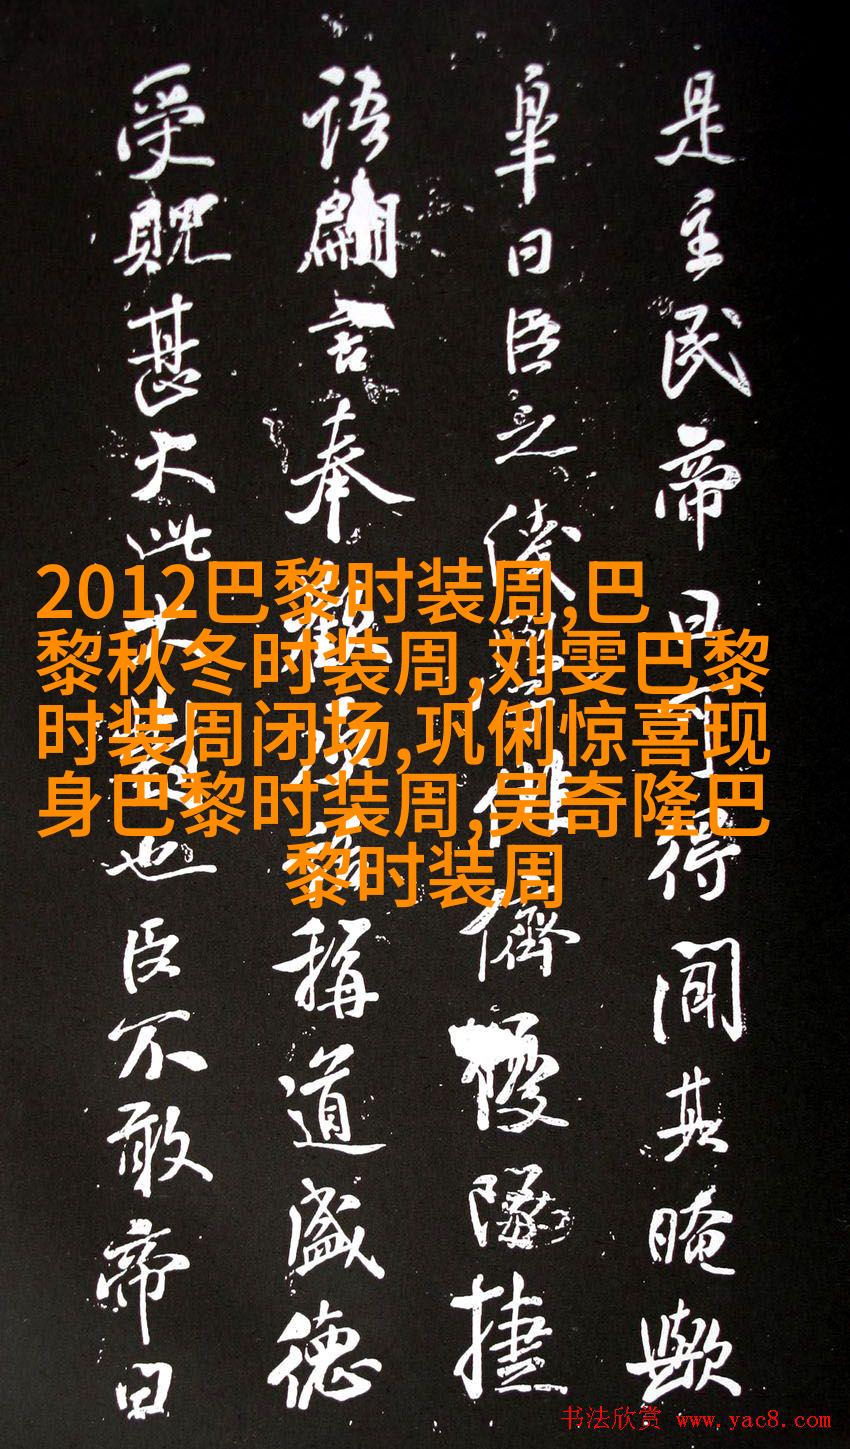 是主民帝曰可得聞其晻歟
皐曰臣之俳儕優隊捷
語言奉稱道盛德
受貺甚大此也臣不敢帝曰
2012巴黎时装周,巴
黎秋冬时装周,刘雯巴黎
时装周闭场,巩俐惊喜现
身巴黎时装周,吴奇隆巴
黎时装周
书法欣赏 www.yac8.com